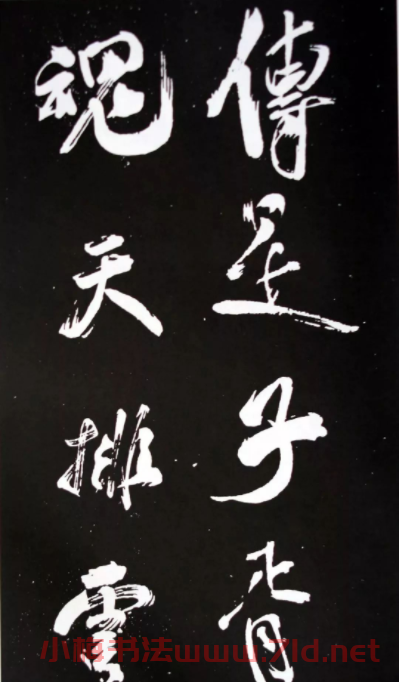 傳是子胥
魂天排雲
小梅书法www.7ld.net